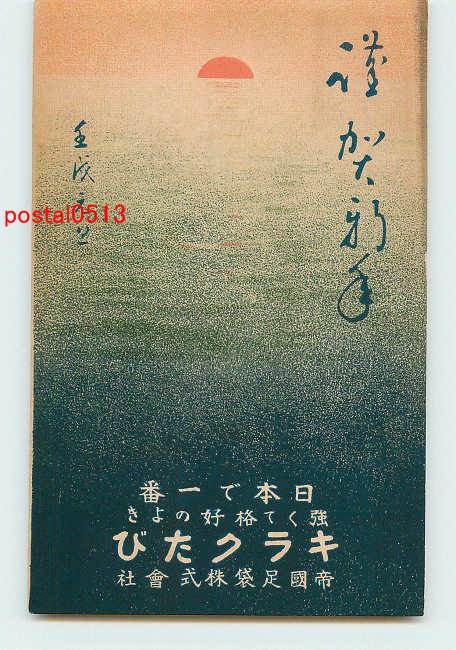 謹賀新年
壬戌元旦
postal0513
日本で一番
強くて格好のよき
キラクたび
帝國足袋株式會社